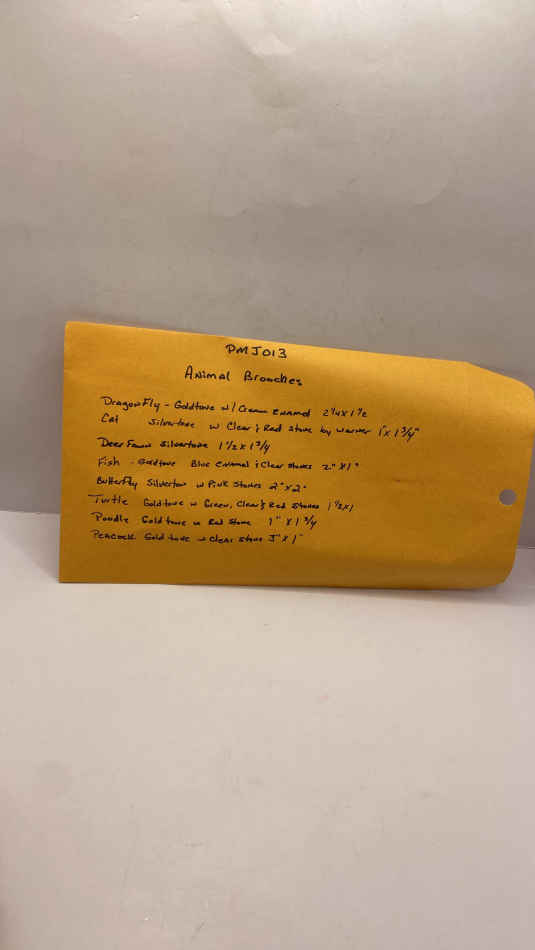 PMJ013
Animal Brooches
DragonFly - Goldtone w/ Cream Enamel 2 1/4 X 1 1/2
Cat Silvertone w Clear & Red Stone by Warner 1" x 1 3/4"
Deer Fawn Silvertone 1 1/2 x 1 3/4
Fish - Goldtone Blue Enamel & Clear Stones 2" X 1"
Butterfly Silverton w Pink Stones 2" x 2"
Turtle Goldtone w Green, Clear & Red Stones 1 1/2 x 1
Poodle Goldtone w Red Stone 1" X 1 3/4
Peacock Goldtone w Clear Stone 3" X 1"